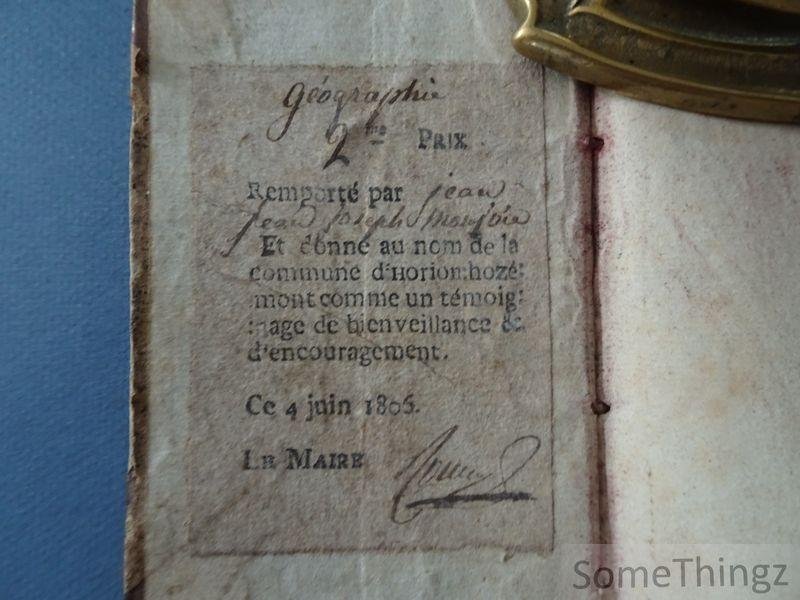 géographie
2me PRIX
Remporté par jean
jean joseph monjoie
Et donné au nom de la
commune d'HORION:hozé:
mont comme un témoig:
:nage de bienveillance &
d'encouragement.
Ce 4 juin 1806.
LE MAIRE
SomeThingz